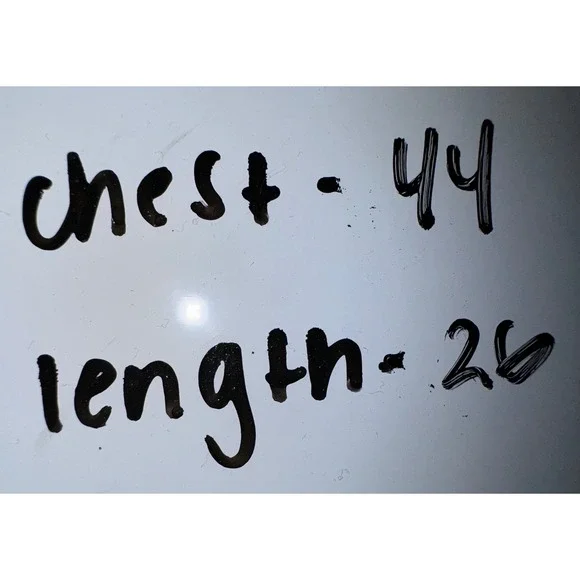 chest - 44
length - 26